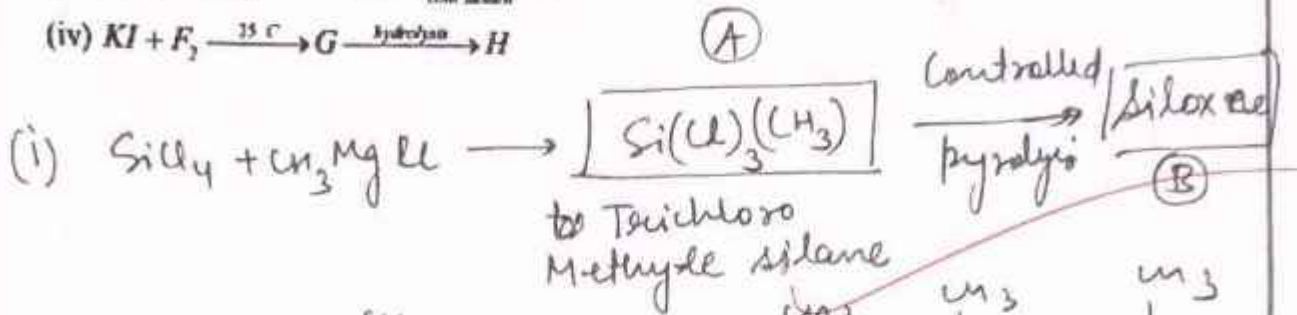 (iv) KI + F₂ —25 C→ G —hydrolysis→ H
(A)
(i) SiCl₄ + CH₃MgCl → Si(Cl)₃(CH₃) Controlled pyrolysis → Silox ne (B)
Trichloro
Methyle silane
CH₃ CH₃